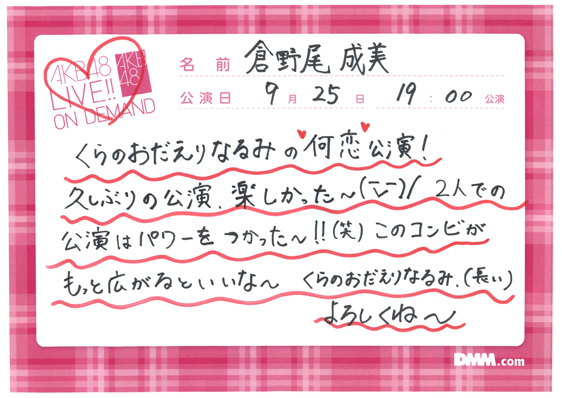 AKB48
LIVE!!
ON DEMAND
AKB
48
名前 倉野尾 成美
公演日 9月25日 19:00公演
くらのおだえりなるみの何恋公演!
久しぶりの公演、楽しかった〜(ˉ▽ˉ)/ 2人での
公演はパワーをつかった〜!!(笑)このコンビが
もっと広がるといいな〜 くらのおだえりなるみ、(長い)
よろしくね〜
DMM.com